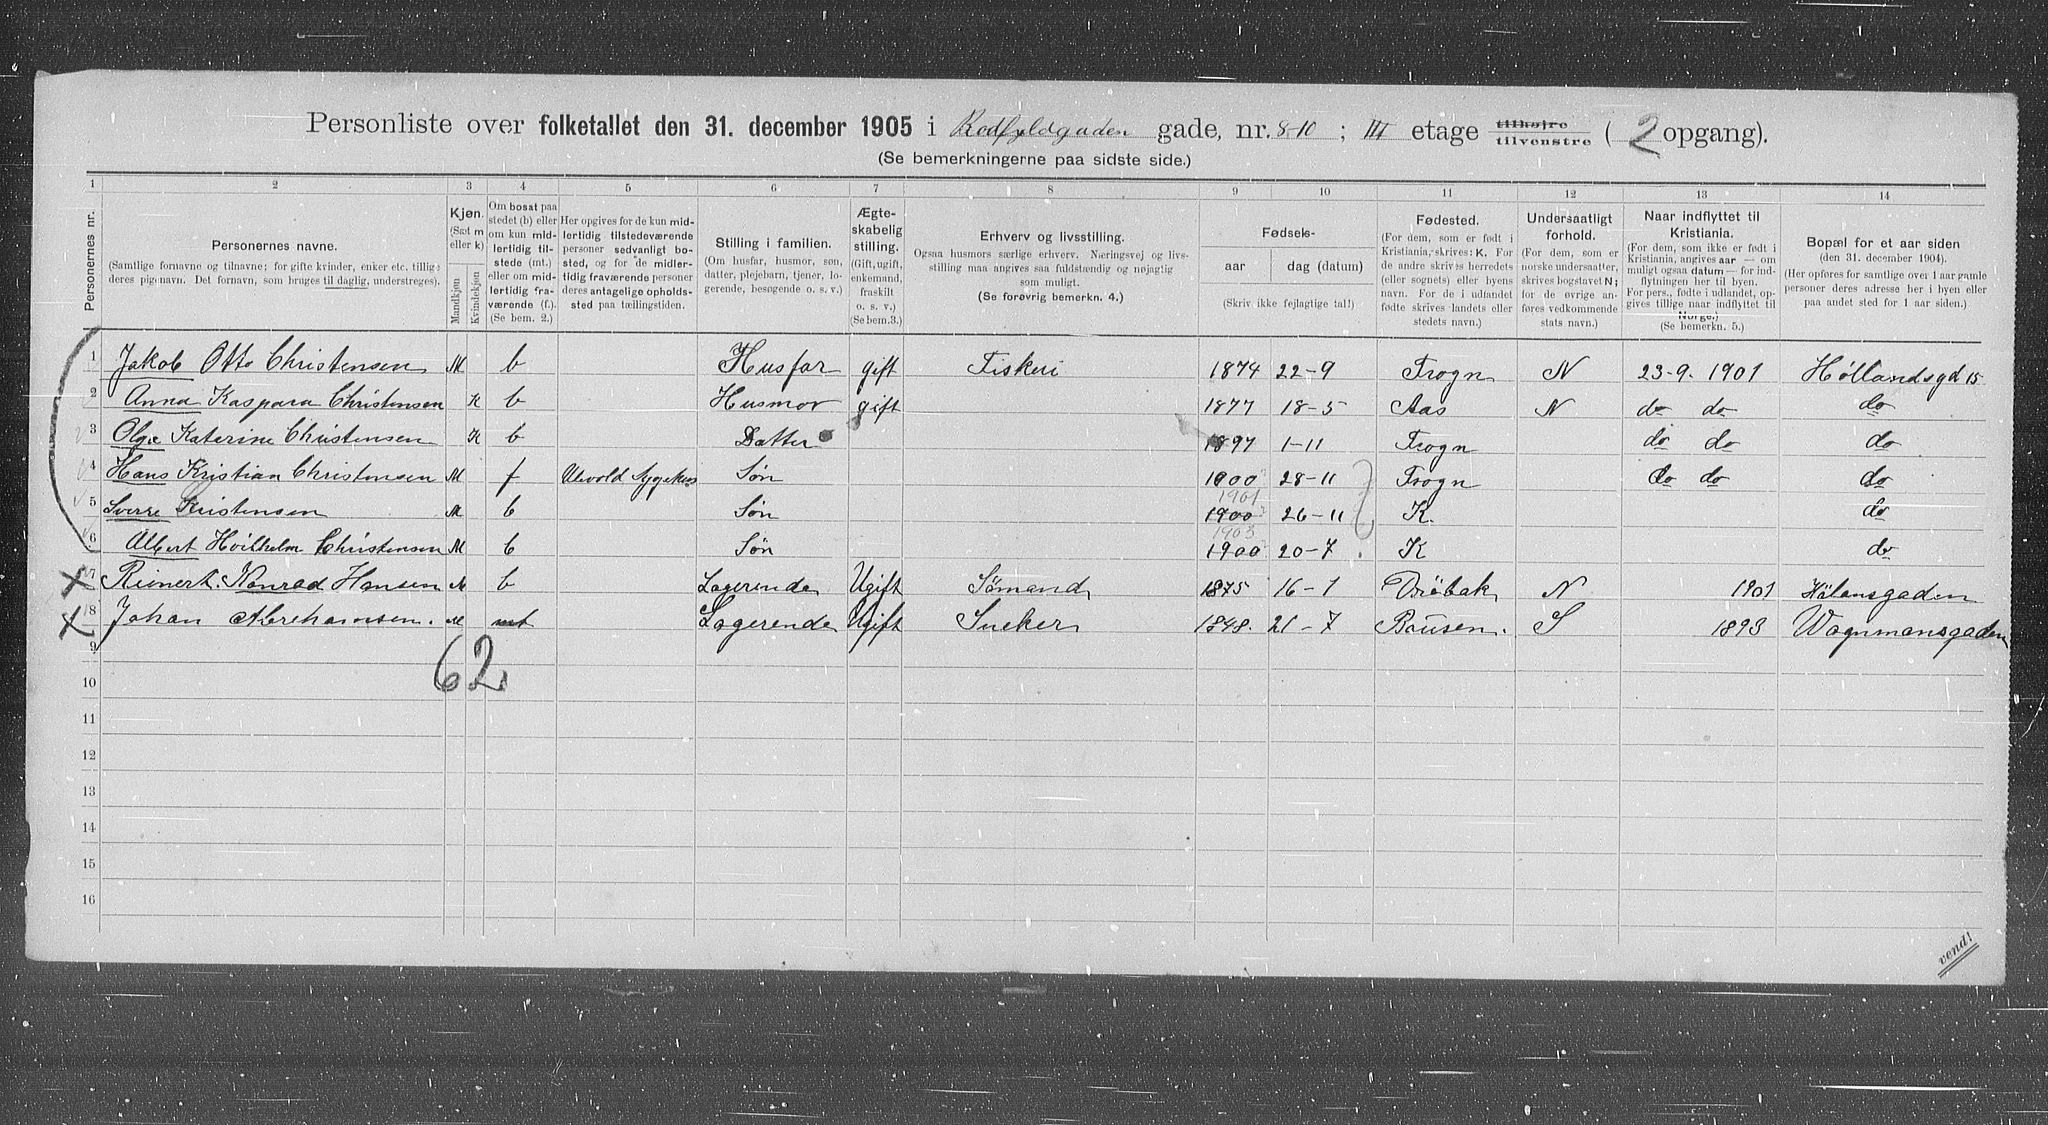 Personliste over folketallet den 31. december 1905 i Rodfyldgaden gade, nr. 8-10; III etage tilhøjre tilvenstre (2 opgang).
(Se bemerkningerne paa sidste side.)
1 2 3 4 5 6 7 8 9 10 11 12 13 14
Personernes nr.
Personernes navne.
(Samtlige fornavne og tilnavne; for gifte kvinder, enker etc. tillige
deres pigenavn. Det fornavn, som bruges til daglig, understreges).
Kjøn.
(Sæt m
eller k)
Mandkjøn
Kvindekjøn
Om bosat paa
stedet (b) eller
om kun midlertidig
tilstede (mt.)
eller om midlertidig
fraværende (f.).
(Se bem. 2.)
Her opgives for de kun midlertidig
tilstedeværende
personer sedvanligt bosted,
og for de midlertidig
fraværende personer
deres antagelige opholdssted
paa tællingstiden.
Stilling i familien.
(Om husfar, husmor, søn,
datter, plejebarn, tjener, logerende,
besøgende o. s. v.)
Ægteskabelig
stilling.
(Gift, ugift,
enkemand,
fraskilt
o. s. v.)
(Se bem. 3.)
Erhverv og livsstilling.
Ogsaa husmors særlige erhverv. Næringsvej og livsstilling
maa angives saa fuldstændig og nøjagtig
som muligt.
(Se forøvrig bemerkn. 4.)
Fødsels-
aar
dag (datum)
(Skriv ikke fejlagtige tal!)
Fødested.
(For dem, som er født i
Kristiania, skrives: K. For
de andre skrives herredets
(eller sognets) eller byens
navn. For de i udlandet
fødte skrives landets eller
stedets navn.)
Undersaatligt
forhold.
(For dem, som er
norske undersaatter,
skrives bogstavet N;
for de øvrige anføres
vedkommende
stats navn.)
Naar indflyttet til
Kristiania.
(For dem, som ikke er født i
Kristiania, angives aar — om
muligt ogsaa datum — for indflytningen
her til byen.
For pers., fødte i udlandet, opgives
tillige naar indflyttet til
Norge.)
(Se bemerkn. 5.)
Bopæl for et aar siden
(den 31. december 1904).
(Her opføres for samtlige over 1 aar gamle
personer deres adresse her i byen eller
paa andet sted for 1 aar siden.)
1 Jakob Otto Christensen M b Husfar gift Fiskeri 1874 22-9 Frogn N 23-9. 1901 Höllandsgd 15
2 Anna Kaspara Christensen K b Husmor gift 1877 18-5 Aas N do do do
3 Olga Katerine Christensen K b Datter 1897 1-11 Frogn do do do
4 Hans Kristian Christensen M f Ulevold Sygehus Søn 1900 28-11 Frogn do do do
1901
5 Sverre Kristensen M b Søn 1900 26-11 K. do
1903
6 Albert Hvilhelm Christensen M b Søn 1900 20-7 K do
7 Reinert. Konrad Hansen M b Logerende Ugift Sömand 1875 16-1 Dröbak N 1901 Hölansgaden
8 Johan M mt Logerende Ugift 1848. 21-7 S 1893 Wognmansgaden
9
62
10
11
12
13
14
15
16
vend!